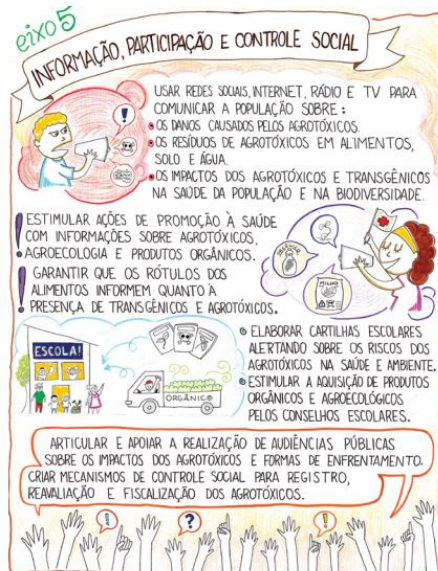 eixo 5
INFORMAÇÃO, PARTICIPAÇÃO E CONTROLE SOCIAL
USAR REDES SOCIAIS, INTERNET, RÁDIO E TV PARA
COMUNICAR A POPULAÇÃO SOBRE:
• OS DANOS CAUSADOS PELOS AGROTÓXICOS.
• OS RESÍDUOS DE AGROTÓXICOS EM ALIMENTOS,
SOLO E ÁGUA.
• OS IMPACTOS DOS AGROTÓXICOS E TRANSGÊNICOS
NA SAÚDE DA POPULAÇÃO E NA BIODIVERSIDADE.
!
! ESTIMULAR AÇÕES DE PROMOÇÃO À SAÚDE
COM INFORMAÇÕES SOBRE AGROTÓXICOS,
AGROECOLOGIA E PRODUTOS ORGÂNICOS.
! GARANTIR QUE OS RÓTULOS DOS
ALIMENTOS INFORMEM QUANTO À
PRESENÇA DE TRANSGÊNICOS E AGROTÓXICOS.
MILHO
ESCOLA!
ORGÂNICO
• ELABORAR CARTILHAS ESCOLARES
ALERTANDO SOBRE OS RISCOS DOS
AGROTÓXICOS NA SAÚDE E AMBIENTE.
• ESTIMULAR A AQUISIÇÃO DE PRODUTOS
ORGÂNICOS E AGROECOLÓGICOS
PELOS CONSELHOS ESCOLARES.
ARTICULAR E APOIAR A REALIZAÇÃO DE AUDIÊNCIAS PÚBLICAS
SOBRE OS IMPACTOS DOS AGROTÓXICOS E FORMAS DE ENFRENTAMENTO.
CRIAR MECANISMOS DE CONTROLE SOCIAL PARA REGISTRO,
REAVALIAÇÃO E FISCALIZAÇÃO DOS AGROTÓXICOS.
! ? !